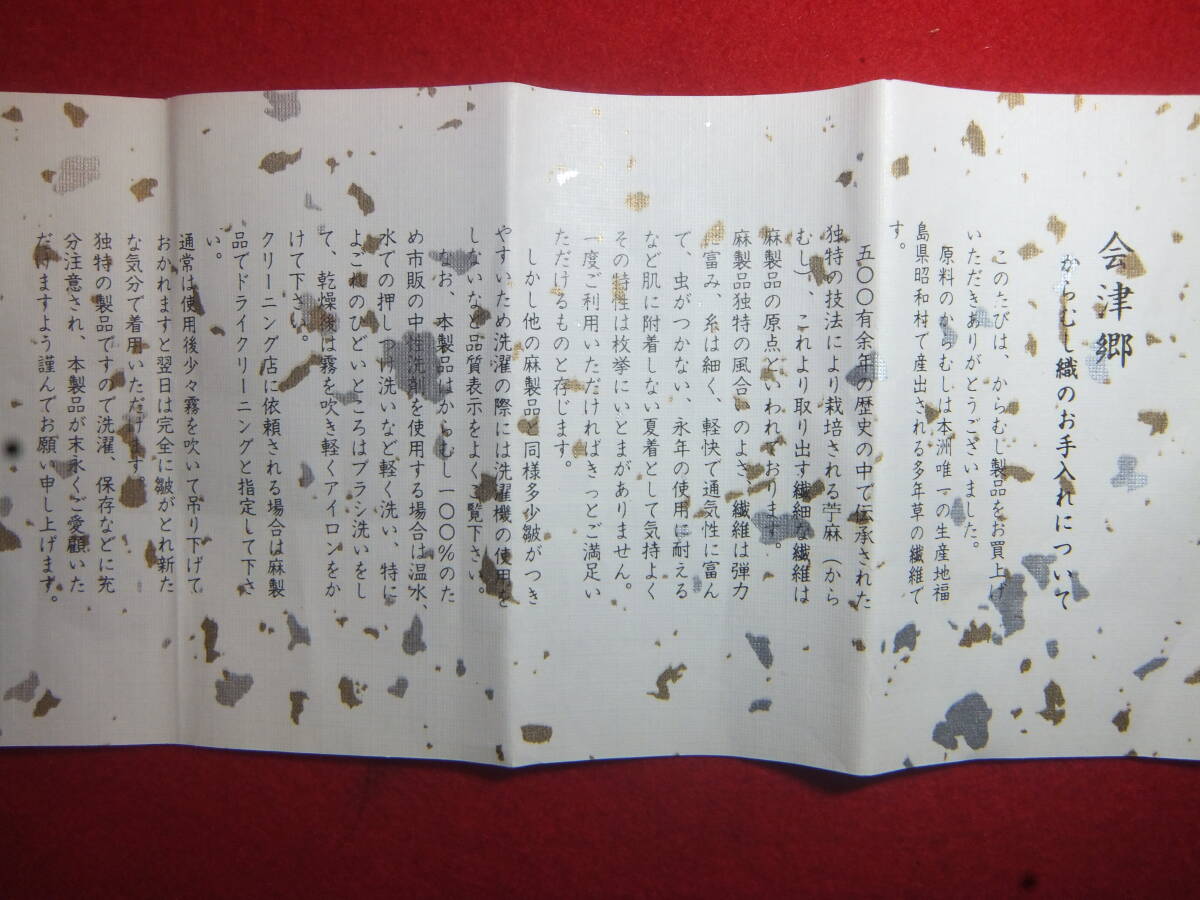 会津郷
からむし織のお手入れについて
このたびは、からむし製品をお買上げ
いただきありがとうございました。
原料のからむしは本洲唯一の生産地福
島県昭和村で産出される多年草の繊維で
す。
五〇〇有余年の歴史の中で伝承された
独特の技法により栽培される苧麻（から
むし）、これより取り出す繊細な繊維は
麻製品の原点といわれております。
麻製品独特の風合いのよさ、繊維は弾力
に富み、糸は細く、軽快で通気性に富ん
で、虫がつかない、永年の使用に耐える
など肌に附着しない夏着として気持よく
その特性は枚挙にいとまがありません。
一度ご利用いただければきっとご満足い
ただけるものと存じます。
しかし他の麻製品と同様多少皺がつき
やすいため洗濯の際には洗濯機の使用を
しないなど品質表示をよくご覧下さい。
なお、本製品はからむし一〇〇％のた
め市販の中性洗剤を使用する場合は温水、
水での押しつけ洗いなど軽く洗い、特に
よごれのひどいところはブラシ洗いをし
て、乾燥後は霧を吹き軽くアイロンをか
けて下さい。
クリーニング店に依頼される場合は麻製
品でドライクリーニングと指定して下さ
い。
通常は使用後少々霧を吹いて吊り下げて
おかれますと翌日は完全に皺がとれ新た
な気分で着用いただけます。
独特の製品ですので洗濯、保存などに充
分注意され、本製品が末永くご愛顧いた
だけますよう謹んでお願い申し上げます。